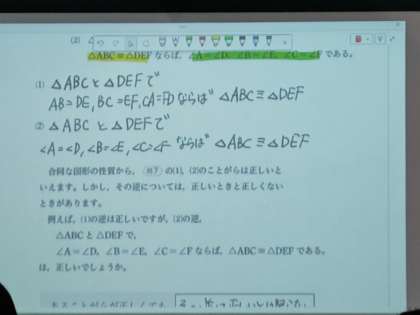 (2)
△ABC≡△DEF ならば，∠A=∠D，∠B=∠E，∠C=∠F である。
① △ABCと△DEFで
AB=DE, BC=EF, CA=FDならば △ABC≡△DEF
② △ABCと△DEFで
∠A=∠D, ∠B=∠E, ∠C=∠F ならば △ABC≡△DEF
合同な図形の性質から，例7の(1)，(2)のことがらは正しいと
いえます。しかし，その逆については，正しいときと正しくない
ときがあります。
例えば，(1)の逆は正しいですが，(2)の逆，
△ABCと△DEFで，
∠A=∠D，∠B=∠E，∠C=∠F ならば，△ABC≡△DEF である。
は，正しいでしょうか。